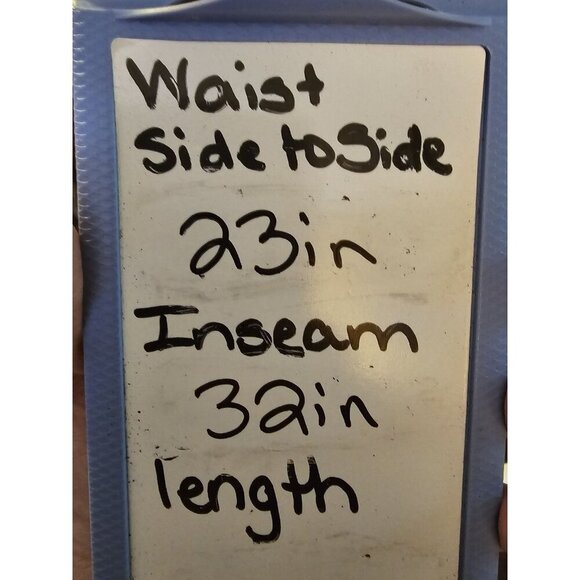 Waist
Side to Side
23in
Inseam
32in
length